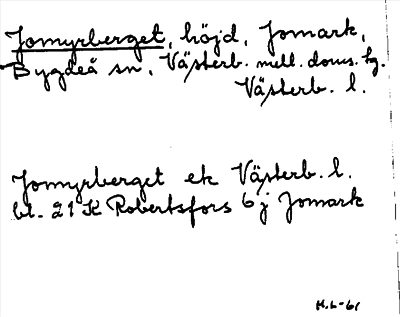 Jomyrberget, höjd, Jomark,
Bygdeå sn, Västerb. mell. doms. hg.
Västerb. l.
Jomyrberget ek Västerb. l.
bl. 21 K Robertsfors 6 j Jomark
H.L-61